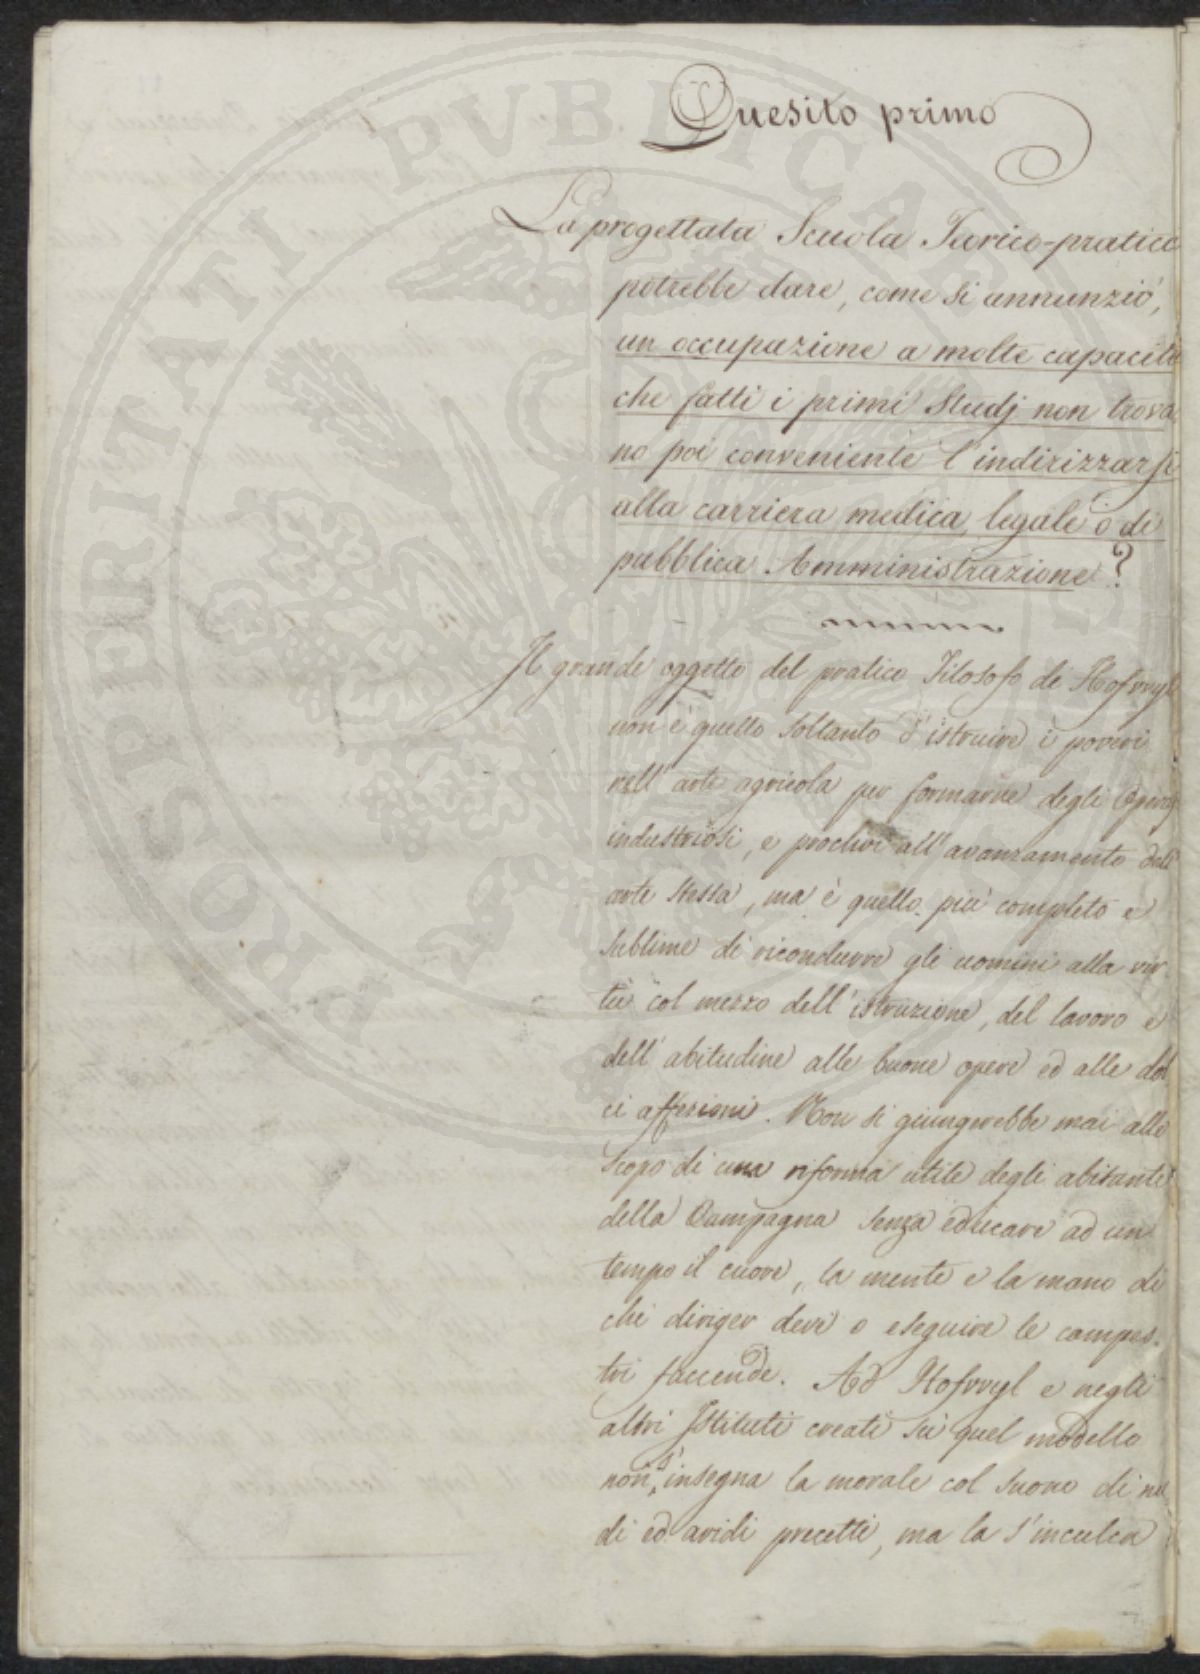 Quesito primo
La progettata Scuola Teorico-pratica
potrebbe dare, come si annunziò,
un occupazione a molte capacità
che fatti i primi Studj non trova
no poi conveniente l'indirizzarsi
alla carriera medica, legale o di
pubblica Amministrazione?
Il grande oggetto del pratico Filosofo di Hofvvyl
non è quello soltanto d'istruire i poveri
nell'arte agricola per formarne degli Operaj
industriosi, e proclivi all'avanzamento dell'
arte stessa, ma è quello più completo e
sublime di ricondurre gli uomini alla vir
tù col mezzo dell'istruzione, del lavoro e
dell'abitudine alle buone opere ed alle dol
ci affezioni. Non si giungerebbe mai allo
scopo di una riforma utile degli abitanti
della Campagna senza educare ad un
tempo il cuore, la mente e la mano di
chi diriger deve o eseguire le campes-
tri faccende. Ad Hofvvyl e negli
altri Istituti creati su quel modello
non s'insegna la morale col suono di nu
di ed aridi precetti, ma la s'inculca
PROSPERITATI PVBLICAE